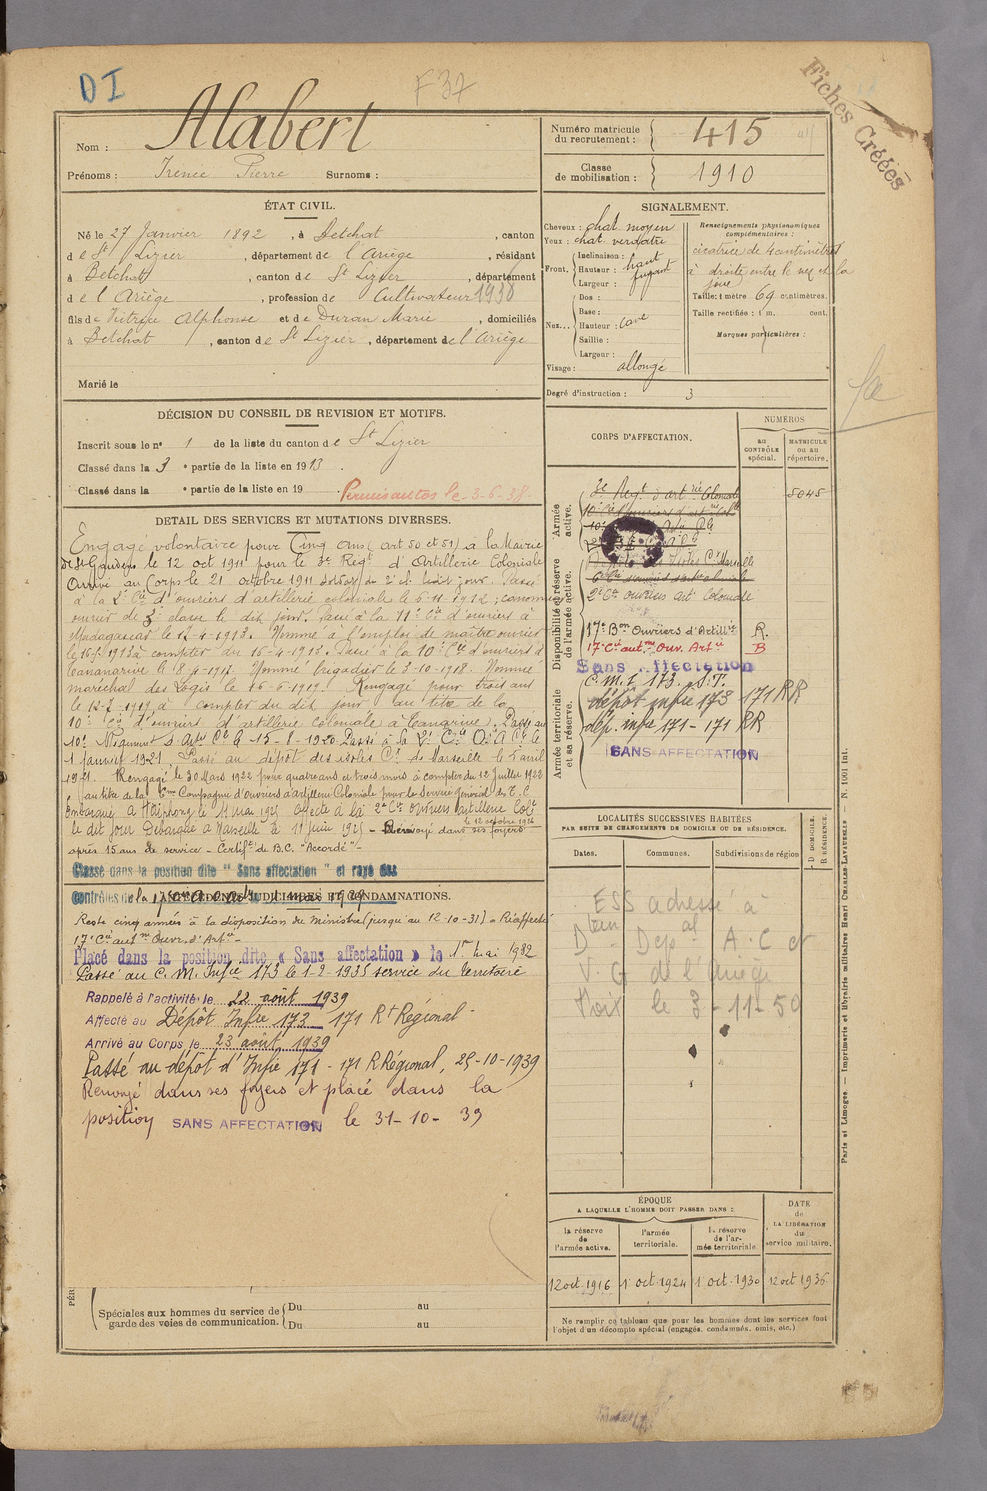 DI
F37
Fiches Créées
Nom : Alabert
Prénoms : Irénée Pierre Surnoms :
Numéro matricule du recrutement : 415
Classe de mobilisation : 1910
ÉTAT CIVIL.
Né le 27 Janvier 1892, à Betchat, canton
de St Lizier, département de l'Ariège, résidant
à Betchat, canton de St Lizier, département
de l'Ariège, profession de Cultivateur 1930
fils de Alphonse et de Duran Marie, domiciliés
à Betchat, canton de St Lizier, département de l'Ariège
Marié le
SIGNALEMENT.
Cheveux : chat. moyen
Yeux : chat. verdatre
Front. Inclinaison :
Hauteur : haut
Largeur : fuyant
Nez... Dos :
Base :
Hauteur : cave
Saillie :
Largeur :
Visage : allongé
Renseignements physionomiques complémentaires :
cicatrice de 4 centimètres
à droite entre le nez et la
joue
Taille : 1 mètre 69 centimètres.
Taille rectifiée : 1 m. cent.
Marques particulières :
Degré d'instruction : 3
DÉCISION DU CONSEIL DE REVISION ET MOTIFS.
Inscrit sous le n° 1 de la liste du canton de St Lizier
Classé dans la 3e partie de la liste en 1913.
Classé dans la e partie de la liste en 19
Permis autos le 3-6-38.
DETAIL DES SERVICES ET MUTATIONS DIVERSES.
Engagé volontaire pour Cinq ans (art 50 et 51) à la Mairie
de St Gaudens le 12 oct 1911 pour le 3e Régt d'Artillerie Coloniale
Arrivé au Corps le 21 octobre 1911 soldat de 2e cl. ludit jour. Passé
à la 2e Cie d'ouvriers d'artillerie coloniale le 6-11-1912 ;
ouvrier de 3e classe le dit jour. Passé à la 11e Cie d'ouvriers à
Madagascar le 12-4-1913. Nommé à l'emploi de maître ouvrier
à compter du 16-4-1913. Passé à la 10e Cie d'ouvriers à
Tananarive le 8-4-1917. Nommé brigadier le 3-10-1918. Nommé
maréchal des Logis le 16-6-1919. Rengagé pour trois ans
le 12-7-1919 à compter du dit jour au titre de la
10e Cie d'ouvriers d'artillerie coloniale à Tanarive. Passé au
10e Régiment d'Artie Cle le 15-8-1920. Passé à la 2e Cie O. A Cle le
1 janvier 1921. Passé au dépôt des isolés Cx de Marseille le 5 avril
1921. Rengagé le 30 Mars 1922 pour quatre ans et trois mois à compter du 12 Juillet 1922
au titre de la 6me Compagnie d'ouvriers d'artillerie Coloniale pour le Service Général des T.C
Embarqué à Haïphong le 11 mai 1925 affecté à la 2e Cie Ouvriers artillerie Cole
le dit jour Débarqué à Marseille le 11 juin 1925 - Renvoyé dans ses foyers le 12 octobre 1926
après 15 ans de service - Certift de B.C. "Accordé" -
Classé dans la position dite "Sans affectation" et rayé des
contrôles de la
ANTÉCÉDENTS JUDICIAIRES ET CONDAMNATIONS.
Reste cinq années à la disposition du Ministre (jusqu'au 12-10-31) - Réaffecté
17e Cie autme Ouvr. d'Artie -
Placé dans la position dite « Sans affectation » le 1er Mai 1932
Passé au C. M. Infie 173 le 1-2-1935 service du territoire
Rappelé à l'activité le 22 août 1939
Affecté au Dépôt Infie 173 171 Rt Régional -
Arrivé au Corps le 23 août 1939
Passé au dépôt d'Infie 171 - 171 R Régional, 25-10-1939
Renvoyé dans ses foyers et placé dans la
position SANS AFFECTATION le 31-10-39
PÉR
Spéciales aux hommes du service de garde des voies de communication. Du au
Du au
CORPS D'AFFECTATION.
NUMÉROS
au CONTRÔLE spécial.
MATRICULE ou au répertoire.
Armée active.
3e Régt d'artrie Coloniale 5045
Dépôt des Isolés Cx Marseille
2e Cie ouvriers art Coloniale
Disponibilité et réserve de l'armée active.
17e Bon Ouvriers d'Artillie R.
17e Cie autme Ouv. Artie B
Sans affectation
Armée territoriale et sa réserve.
C. M. I. 173. S.T.
dépôt infie 173 171 RR
dép. infie 171 - 171 RR
SANS-AFFECTATION
LOCALITÉS SUCCESSIVES HABITÉES
PAR SUITE DE CHANGEMENTS DE DOMICILE OU DE RÉSIDENCE.
Dates. Communes. Subdivisions de région
D. DOMICILE. R. RÉSIDENCE.
ESS adressé à
Dtion Depal A.C et
V.G de l'Ariège
Foix le 3-11-50
ÉPOQUE
A LAQUELLE L'HOMME DOIT PASSER DANS :
la réserve de l'armée active.
l'armée territoriale.
la réserve de l'armée territoriale
DATE de LA LIBÉRATION du service militaire.
12 oct 1916 1 oct 1924 1 oct 1930 12 oct 1936
Ne remplir ce tableau que pour les hommes dont les services font
l'objet d'un décompte spécial (engagés, condamnés, omis, etc.)
Paris et Limoges. — Imprimerie et librairie militaires Henri CHARLES-LAVAUZELLE — N. 1001 Int.